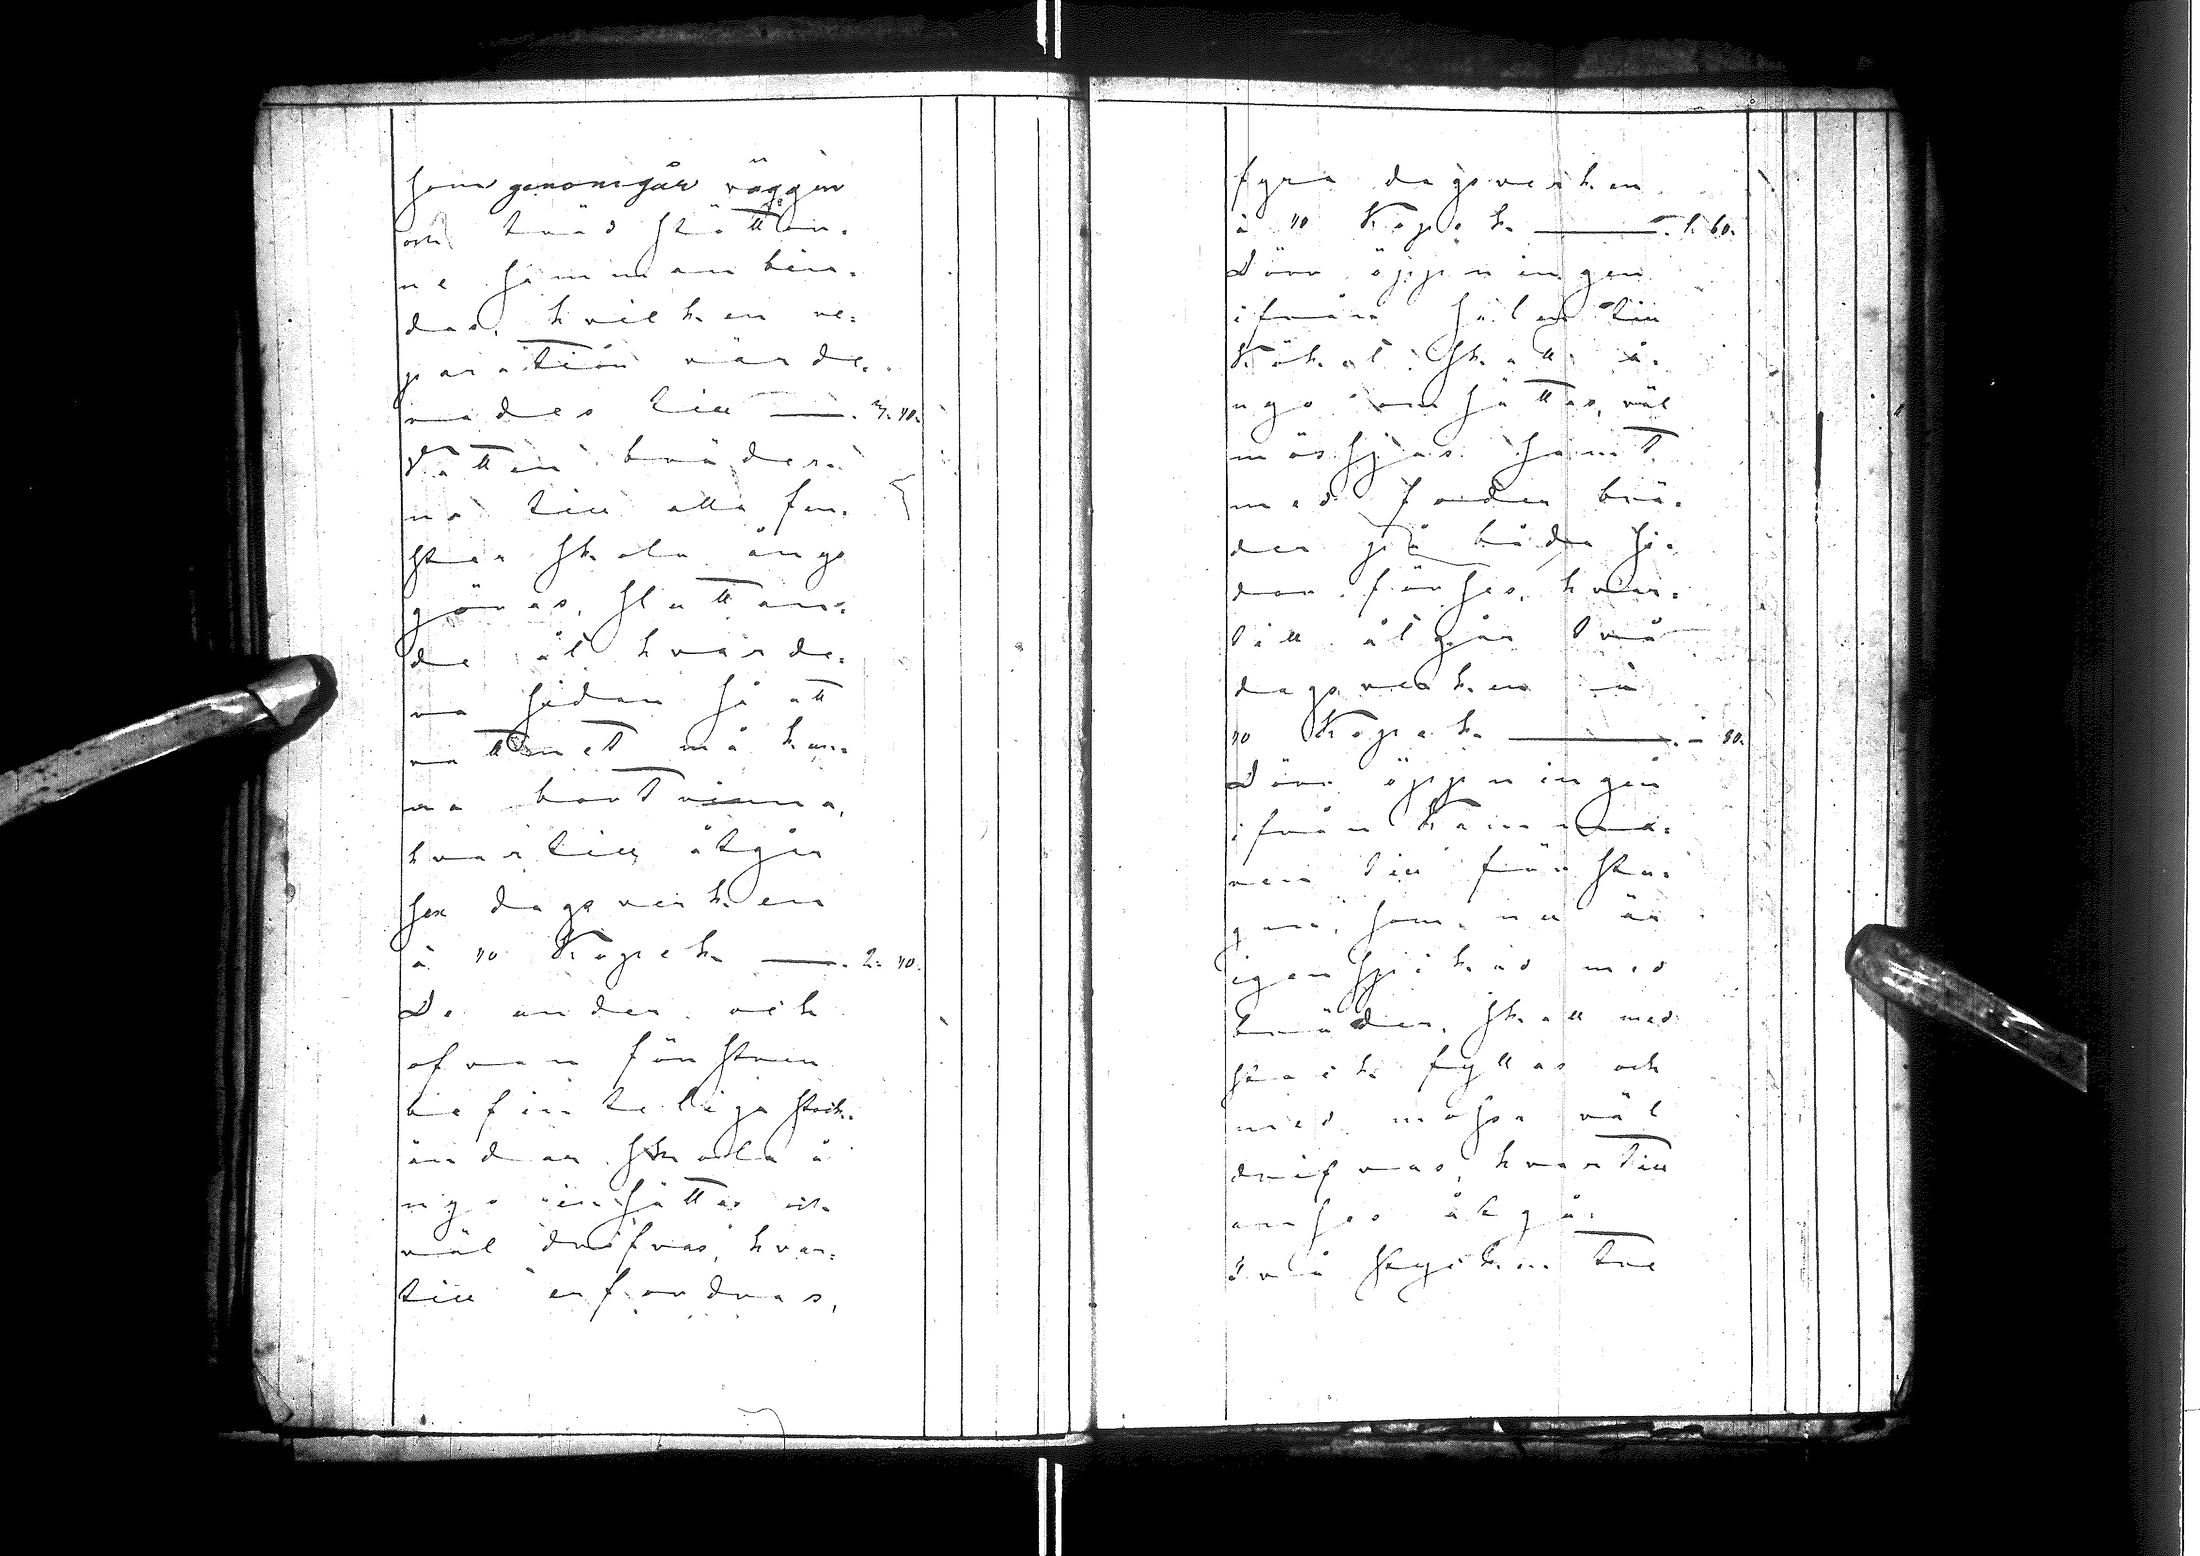 som genomgår väggen
och träd stöttor-
ne samman bin-
das, hvilken re-
paration värde-
rades till —. 3. 40.
Vatten bräder-
na till alla fen-
ster skola ånyo
göras, sluttan-
de åt hvarde-
ra sidan så att
vattnet må kun-
na bortrinna,
hvartill åtgår
sex dagsverken
à 40 Kopek —. 2. 40.
De under och
ofvan fönstren
befinteliga stock-
ändar skola å
nyo insättas och
väl drifvas, hvar-
till erfordras,
fyra dagsverken
à 40 Kopek —. 1. 60.
Dörr öppningen
ifrån salen till
Köket skall å-
nyo omsättas, väl
mossjas samt
med foder brä-
der på båda si-
dor förses, hvar-
till åtgår två
dagsverken à
40 Kopek —. - 80.
Dörr öppningen
ifrån Kamma-
ren till förstu-
gun, som nu är
igenspikad med
bräder, skall med
stock fyllas och
med mossa väl
drifvas, hvartill
anses åtgå:
två stycken tre